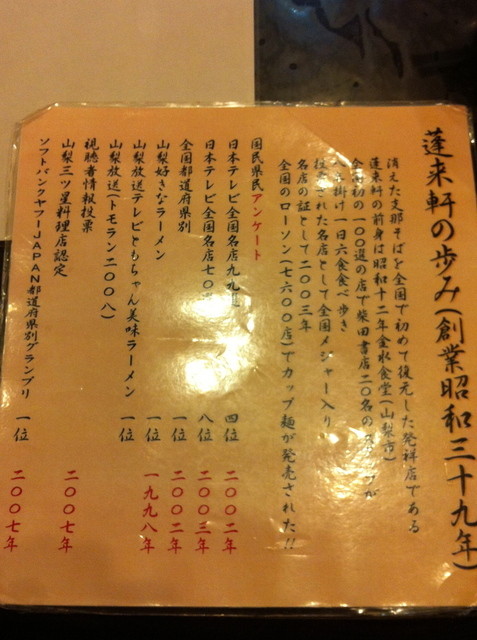 蓬来軒の歩み(創業昭和三十九年)
消えた支那そばを全国で初めて復元した発祥店である
蓬来軒の前身は昭和十二年金水食堂(山梨市)
全国初の一〇〇選の店で柴田書店二〇名のスタッフが
手掛け一日六食食べ歩き
投票された名店として全国メジャー入り
名店の証として二〇〇三年
全国のローソン(七六〇〇店)でカップ麺が発売された!!
国民県民アンケート
日本テレビ全国名店九九 四位 二〇〇二年
日本テレビ全国名店七〇 八位 二〇〇三年
全国都道府県別 一位 二〇〇二年
山梨好きなラーメン 一位 一九九八年
山梨放送テレビともちゃん美味ラーメン 一位
山梨放送(トモラン二〇〇八)
視聴者情報投票
山梨三ツ星料理店認定 二〇〇七年
ソフトバンクヤフーJAPAN都道府県別グランプリ 一位 二〇〇七年